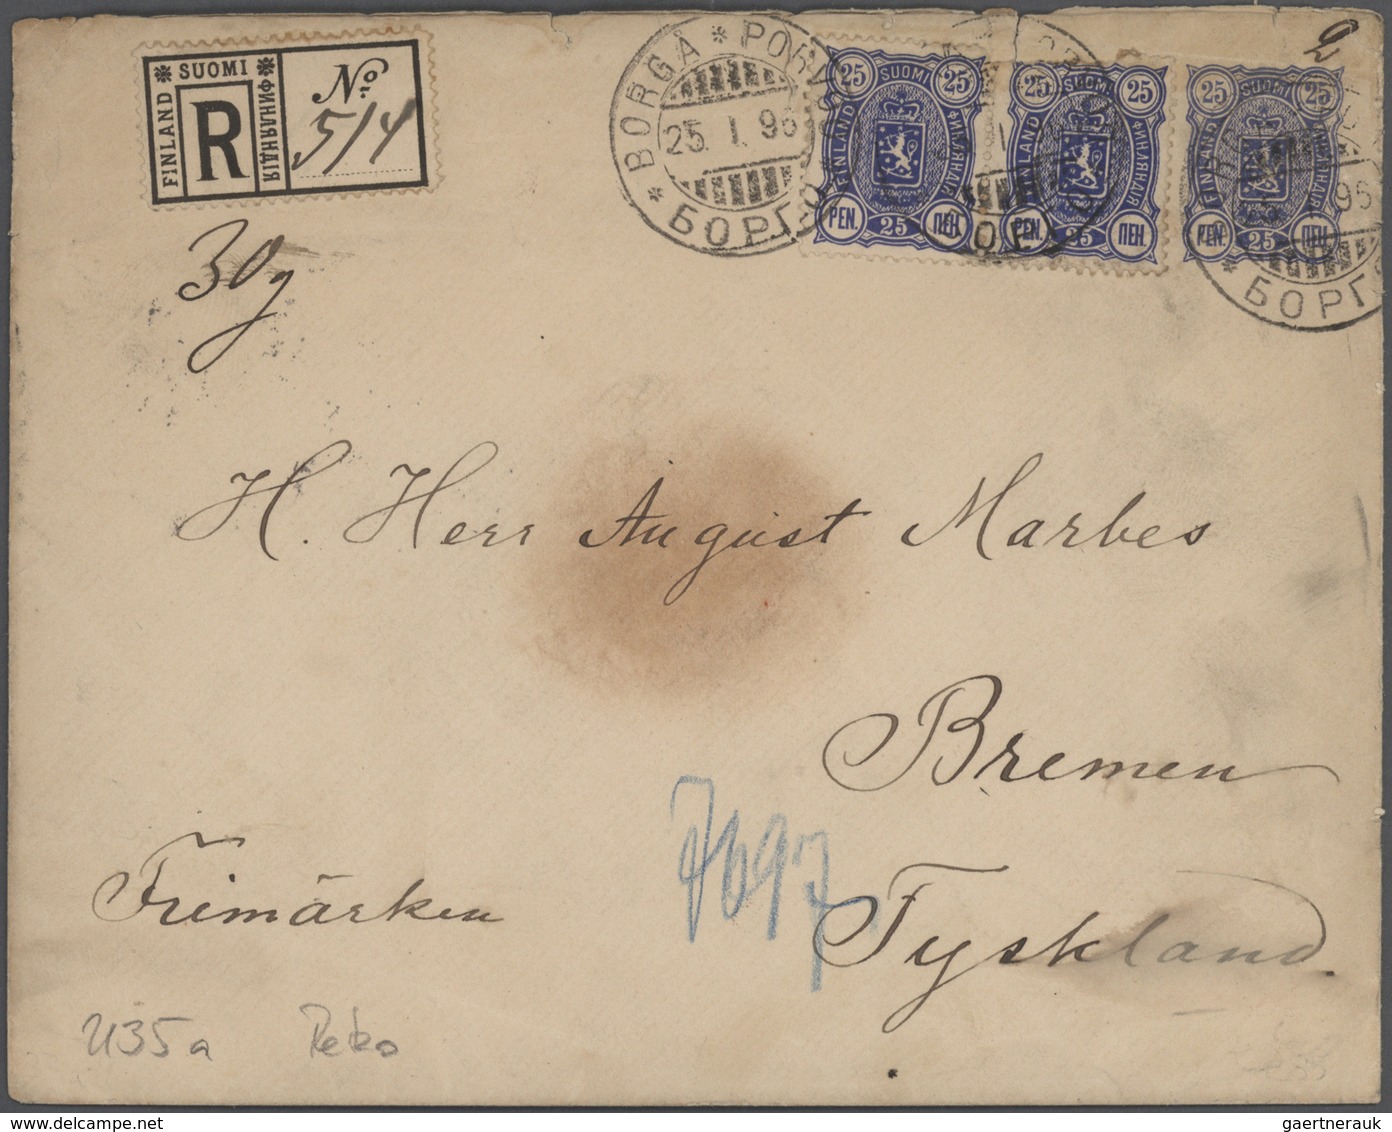 FINLAND * SUOMI * ФИНЛЯНДІЯ
R
No
5/4
2
BORGÅ * PORVOO * БОРГО *
25. I. 96
25 SUOMI 25
FINLAND ФИНЛЯНДІЯ
PEN. 25 ПЕН.
25 SUOMI 25
FINLAND ФИНЛЯНДІЯ
PEN. 25 ПЕН.
25 SUOMI 25
FINLAND ФИНЛЯНДІЯ
PEN. 25 ПЕН.
БОРГО
30g
H. Herr August Marbes
Bremen
Frimärken
Tyskland.
U35a Reko
gaertnerauk